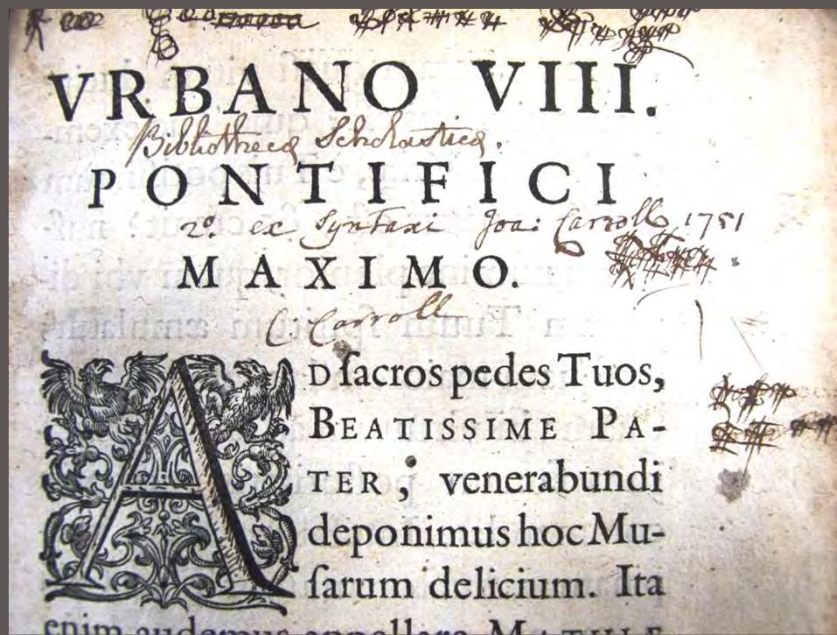 VRBANO VIII.
Bibliotheca Scholastica.
PONTIFICI
2º. ex Syntaxi Joa: Carroll 1751
MAXIMO.
C. Carroll
AD sacros pedes Tuos,
BEATISSIME PA-
TER, venerabundi
deponimus hoc Mu-
sarum delicium. Ita
enim audemus appellare MATHIÆ